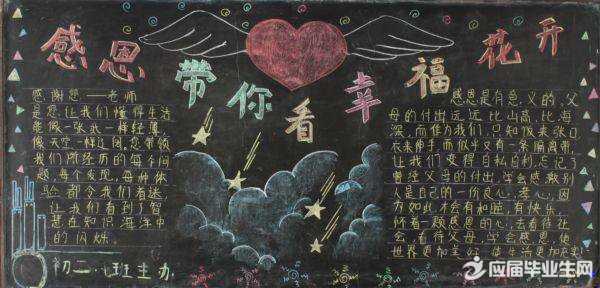 感恩 带你看幸福花开
感谢您——老师
是您,让我们懂得生活
能像一张纸一样轻薄,
像天空一样辽阔,您带领
我们所经历的每个问
题,每个发现,每种体
验都令我们着迷
让我们看到了智
慧在知识海洋中
的闪烁。
初二 班主办
感恩是有意义的,父
母的付出远远比山高、比海
深,而作为我们,只知饭来张口,
衣来伸手,而似乎又有一条隔离带,
让我们变得自私自利,忘记了
曾经父母的付出,学会感激别
人是自己的一份良心、孝心,因
为如此才会有和睦,有快乐,
怀着一颗感恩的心,去看待社
会,看待父母,学会感恩,使
世界更加美好,使生活更加充实
应届毕业生网